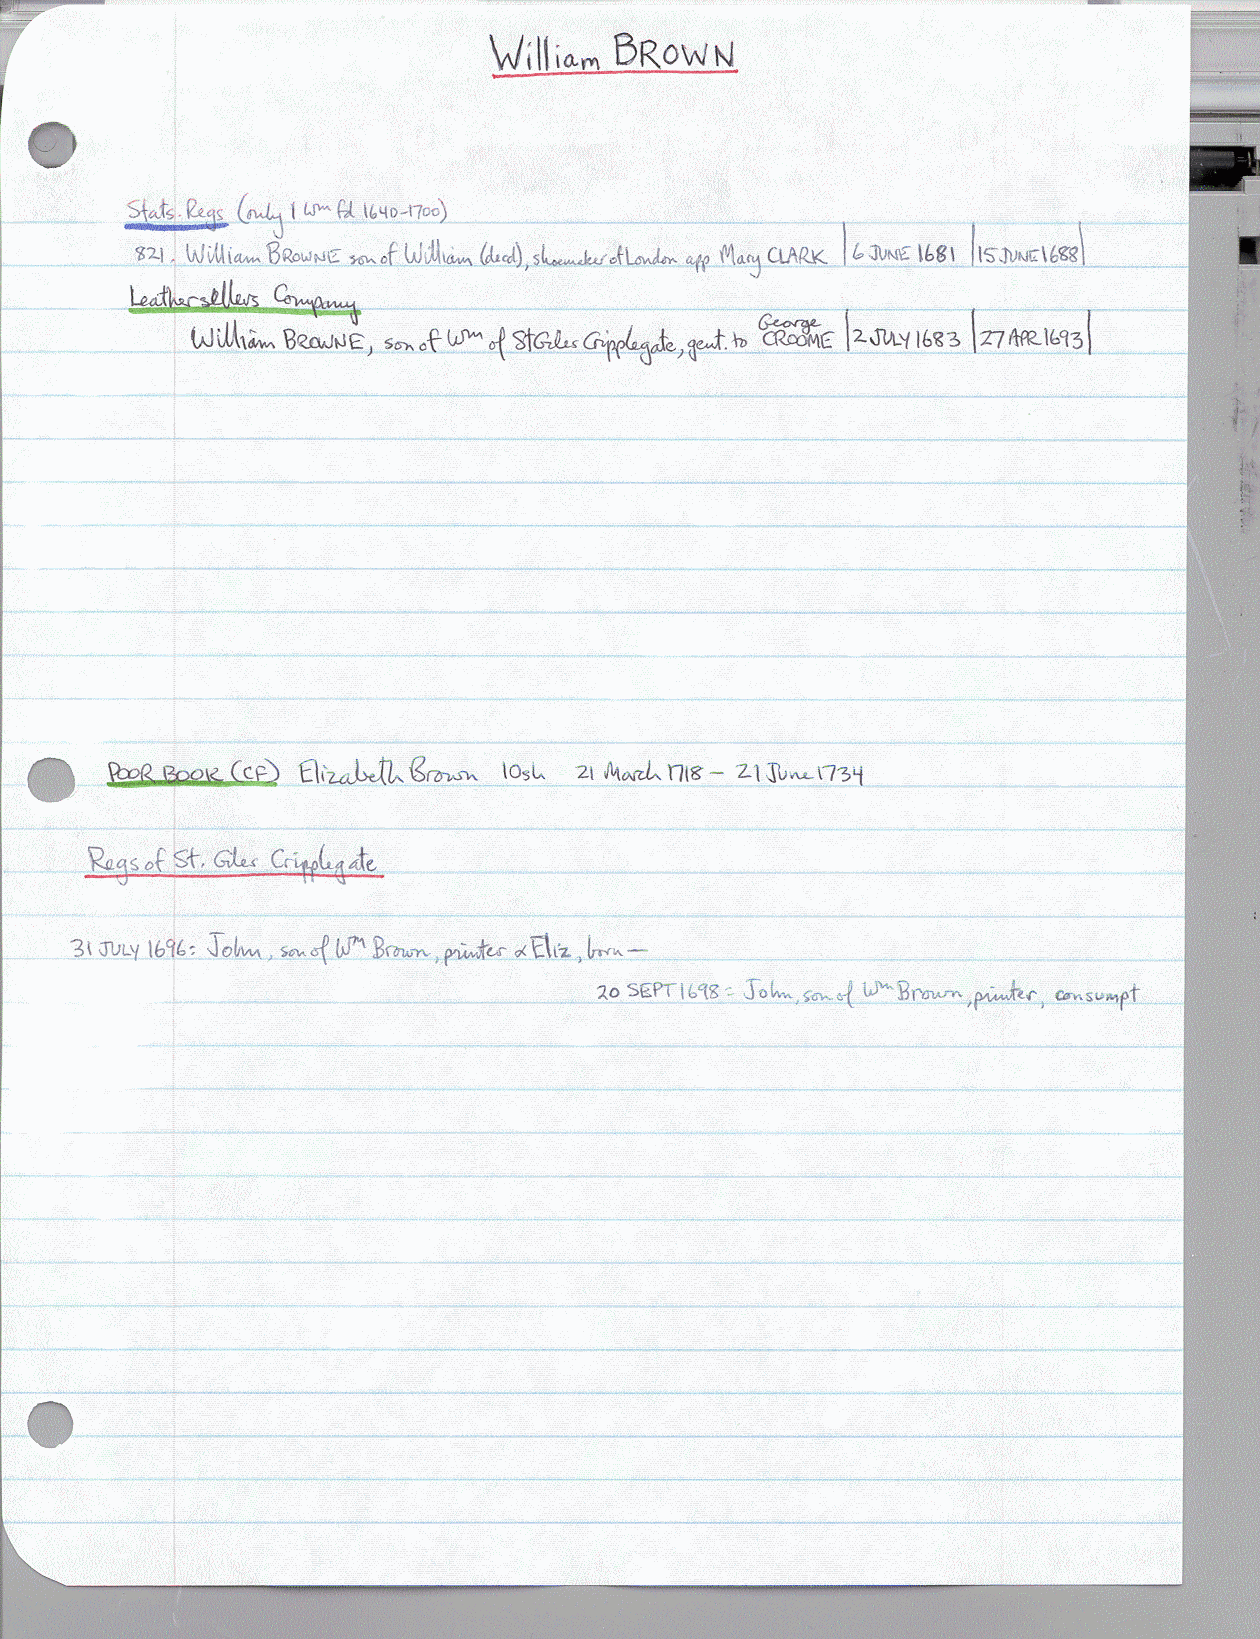 William BROWN
Stats. Regs (only 1 Wm fd 1640-1700)
821. William BROWNE son of William (decd), shoemaker of London app Mary CLARK | 6 JUNE 1681 | 15 JUNE 1688 |
Leathersellers Company
William BROWNE, son of Wm of St Giles Cripplegate, gent. to George CROOME | 2 JULY 1683 | 27 APR 1693 |
POOR BOOK (CF) Elizabeth Brown 10sh 21 March 1718 - 21 June 1734
Regs of St. Giles Cripplegate
31 JULY 1696: John, son of Wm Brown, printer & Eliz, born —
20 SEPT 1698: John, son of Wm Brown, printer, consumpt